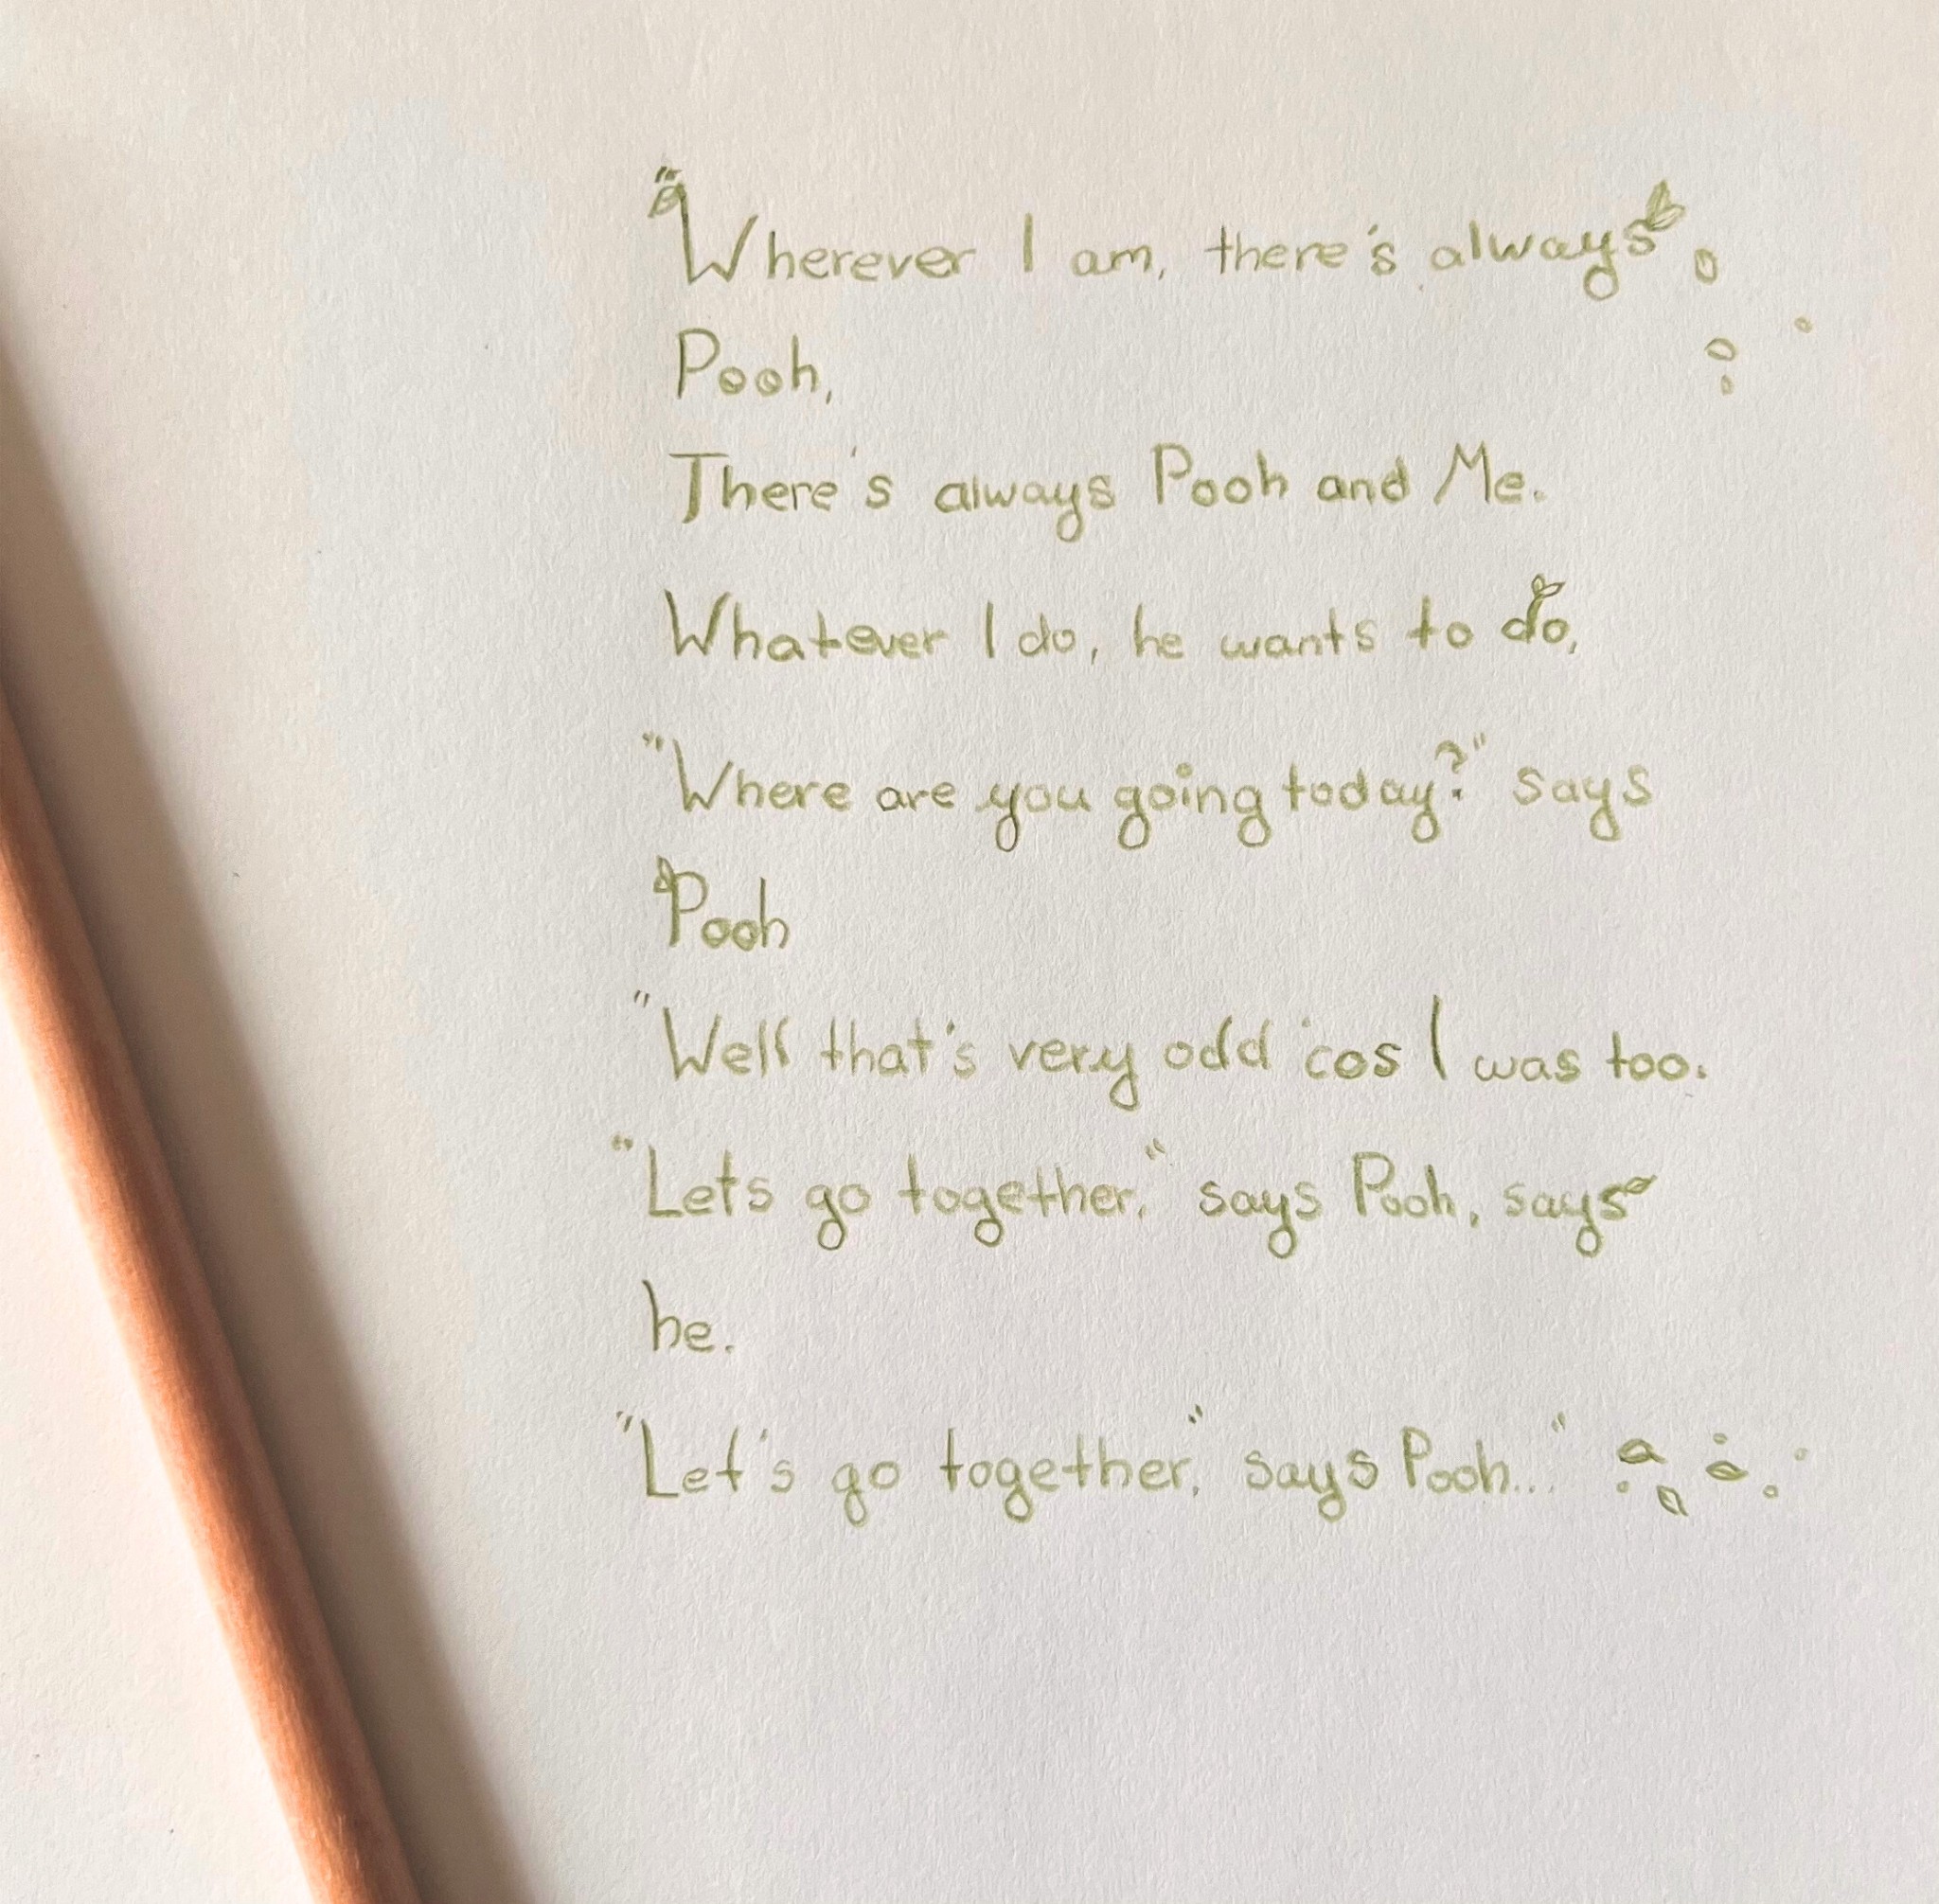 "Wherever I am, there's always
Pooh,
There's always Pooh and Me.
Whatever I do, he wants to do,
"Where are you going today?" says
Pooh
"Well that's very odd 'cos I was too.
"Lets go together," says Pooh, says
he.
"Let's go together," says Pooh..."